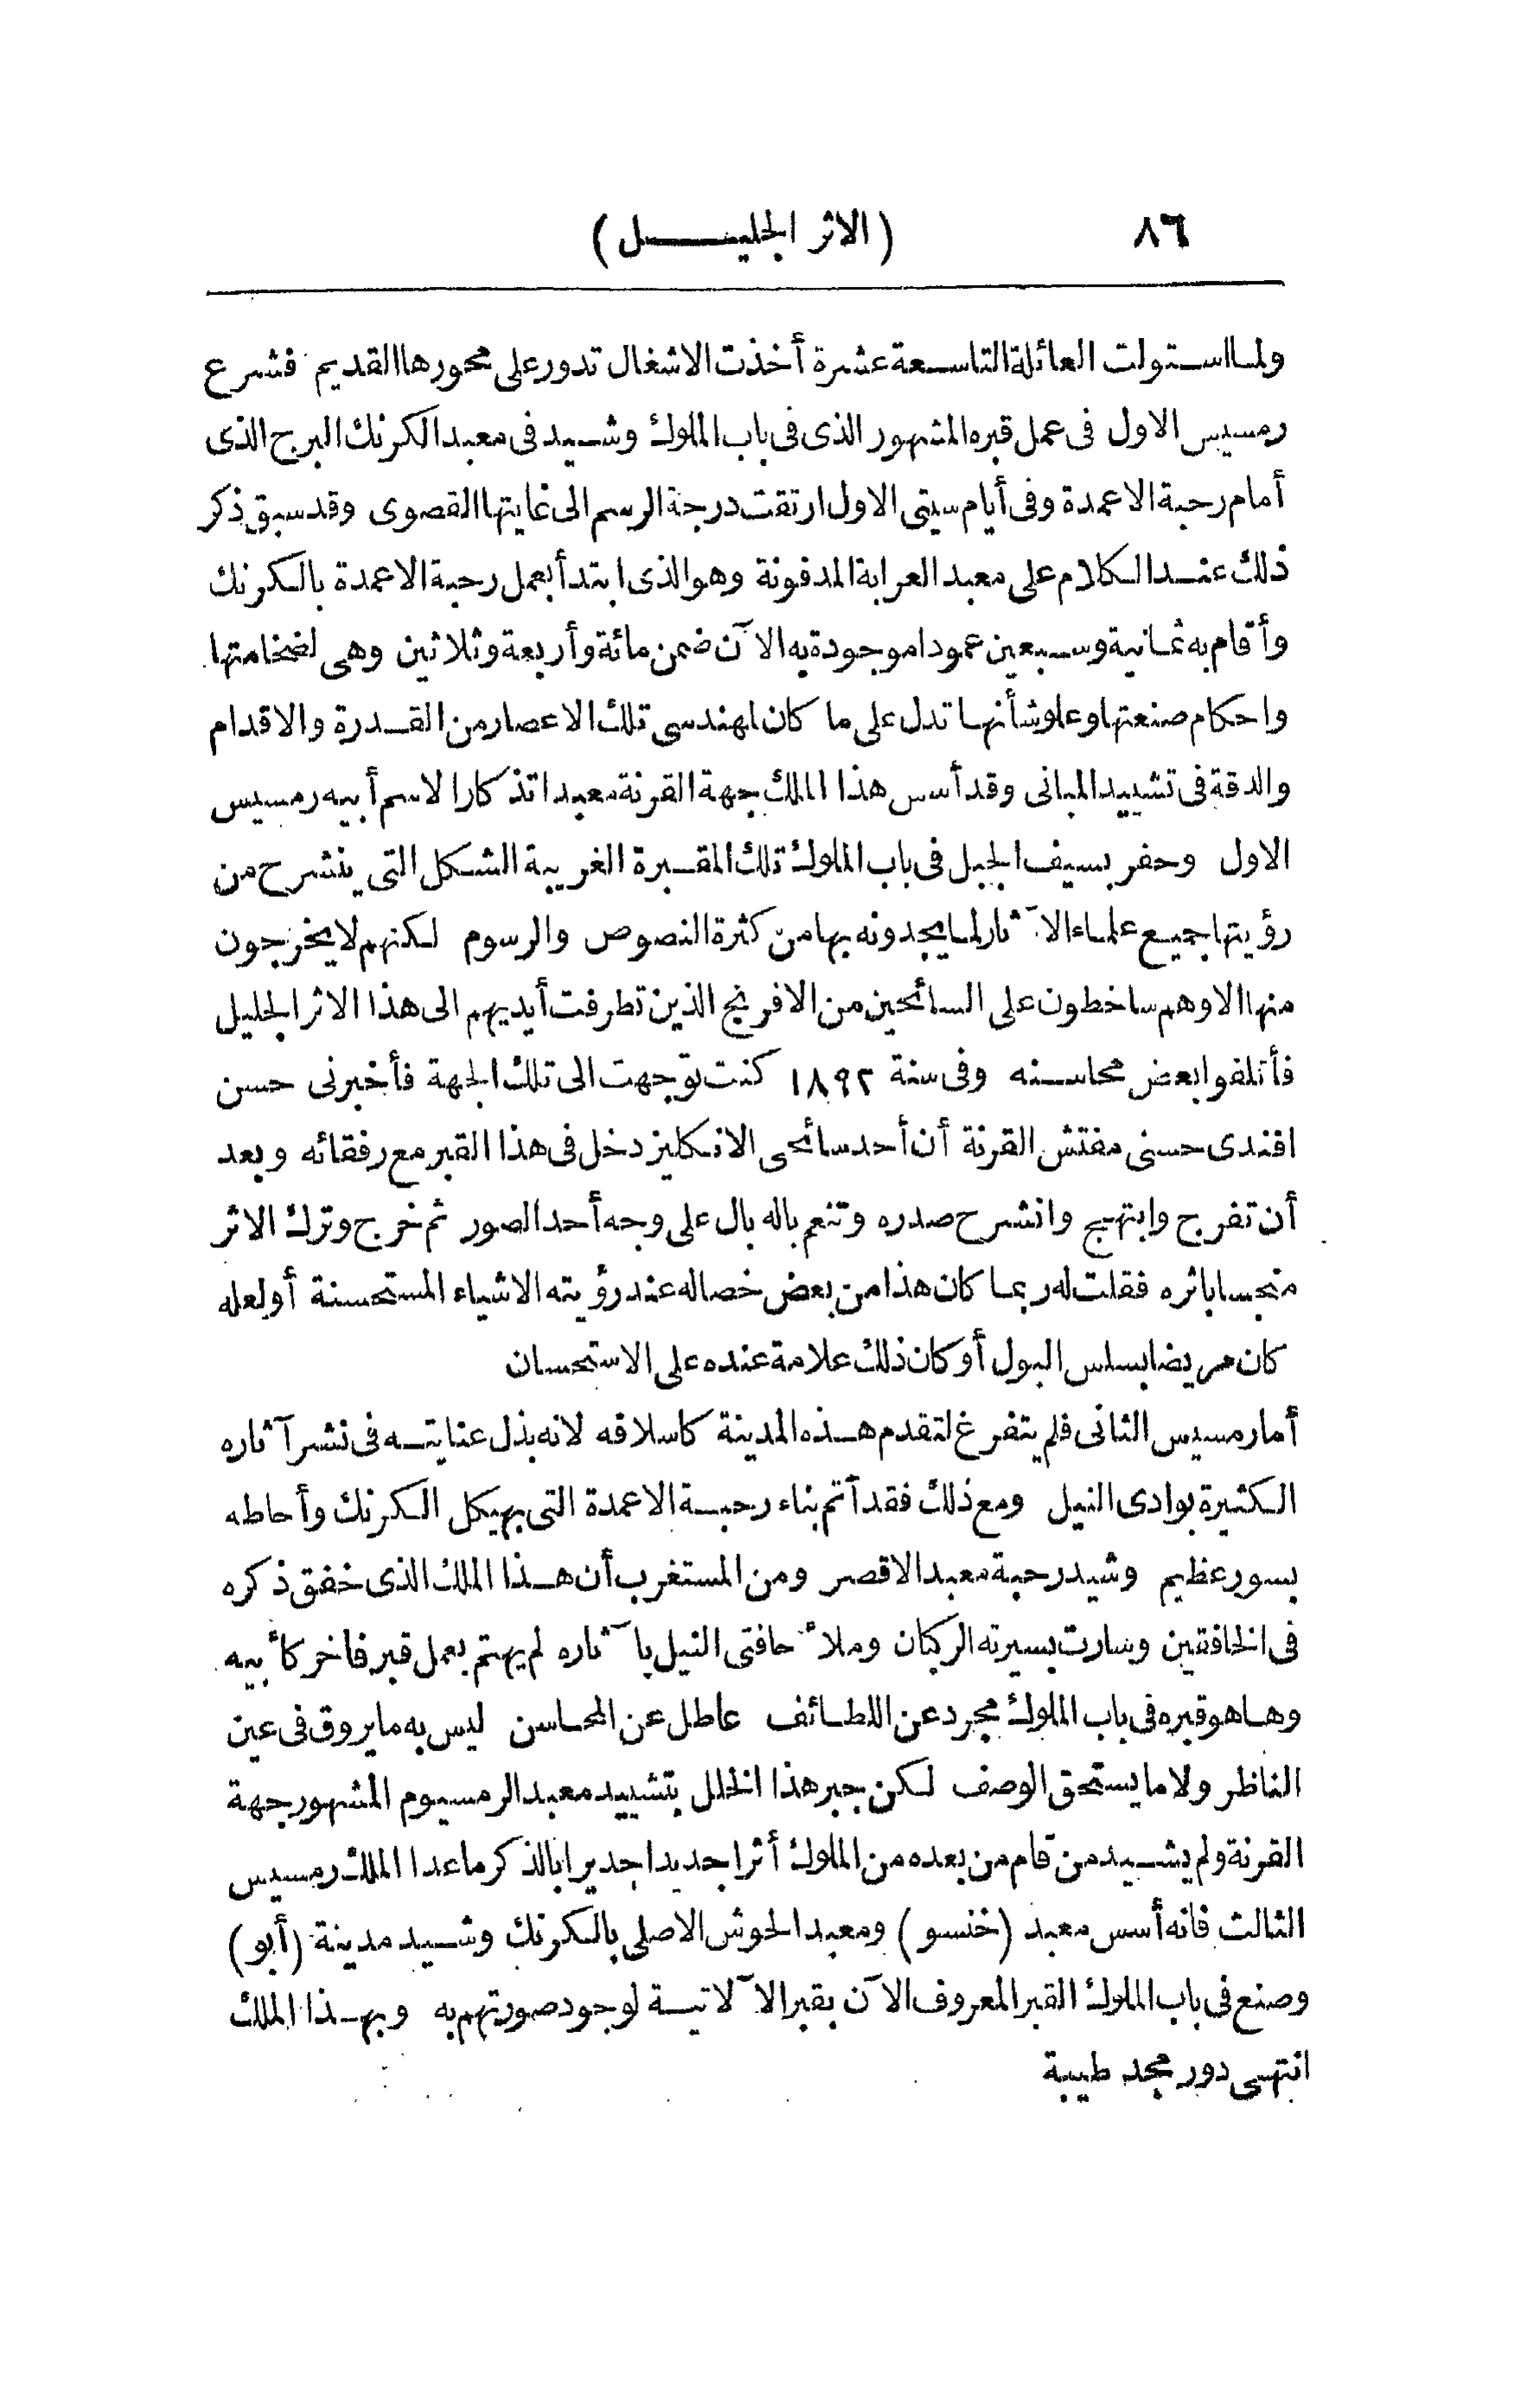 ٨٦ (الاثر الجليل)
ولما استولت العائلة التاسعة عشرة أخذت الاشغال تدور على محورها القديم فشرع
رمسيس الاول فى عمل قبره المشهور الذى فى باب الملوك وشيد فى معبد الكرنك البرج الذى
أمام رحبة الاعمدة وفى أيام سيتى الاول ارتقت درجة الرسم الى غايتها القصوى وقد سبق ذكر
ذلك عند الكلام على معبد العرابة المدفونة وهو الذى ابتدأ بعمل رحبة الاعمدة بالكرنك
وأقام به ثمانية وسبعين عمودا موجودة به الآن ضمن مائة وأربعة وثلاثين وهى لضخامتها
واحكام صنعتها وعلو شأنها تدل على ما كان لمهندسى تلك الاعصار من القدرة والاقدام
والدقة فى تشييد المبانى وقد أسس هذا الملك جهة القرنة معبدا تذكارا لاسم أبيه رمسيس
الاول وحفر بسيف الجبل فى باب الملوك تلك المقبرة الغريبة الشكل التى ينشرح من
رؤيتها جميع علماء الآثار لما يجدونه بها من كثرة النصوص والرسوم لكنهم لا يخرجون
منها الا وهم ساخطون على السائحين من الافرنج الذين تطرفت أيديهم الى هذا الاثر الجليل
فأتلفوا بعض محاسنه وفى سنة ١٨٩٢ كنت توجهت الى تلك الجهة فأخبرنى حسن
افندى حسنى مفتش القرنة أن أحد سائحى الانكليز دخل فى هذا القبر مع رفقائه وبعد
أن تفرج وابتهج وانشرح صدره وتنعم باله بال على وجه أحد الصور ثم خرج وترك الاثر
منجسا باثره فقلت له ربما كان هذا من بعض خصاله عند رؤيته الاشياء المستحسنة أو لعله
كان مريضا بسلس البول أو كان ذلك علامة عنده على الاستحسان
أما رمسيس الثانى فلم يتفرغ لتقدم هذه المدينة كاسلافه لانه بذل عنايته فى نشر آثاره
الكثيرة بوادى النيل ومع ذلك فقد أتم بناء رحبة الاعمدة التى بهيكل الكرنك وأحاطه
بسور عظيم وشيد رحبة معبد الاقصر ومن المستغرب أن هذا الملك الذى خفق ذكره
فى الخافقين وسارت بسيرته الركبان وملأ حافتى النيل بآثاره لم يهتم بعمل قبر فاخر كأبيه
وها هو قبره فى باب الملوك مجرد عن اللطائف عاطل عن المحاسن ليس به ما يروق فى عين
الناظر ولا ما يستحق الوصف لكن جبر هذا الخلل بتشييد معبد الرمسيوم المشهور جهة
القرنة ولم يشيد من قام من بعده من الملوك أثرا جديدا جديرا بالذكر ما عدا الملك رمسيس
الثالث فانه أسس معبد (خنسو) ومعبد الحوش الاصلى بالكرنك وشيد مدينة (أبو)
وصنع فى باب الملوك القبر المعروف الآن بقبر الآلاتية لوجود صورتهم به وبهذا الملك
انتهى دور مجد طيبة